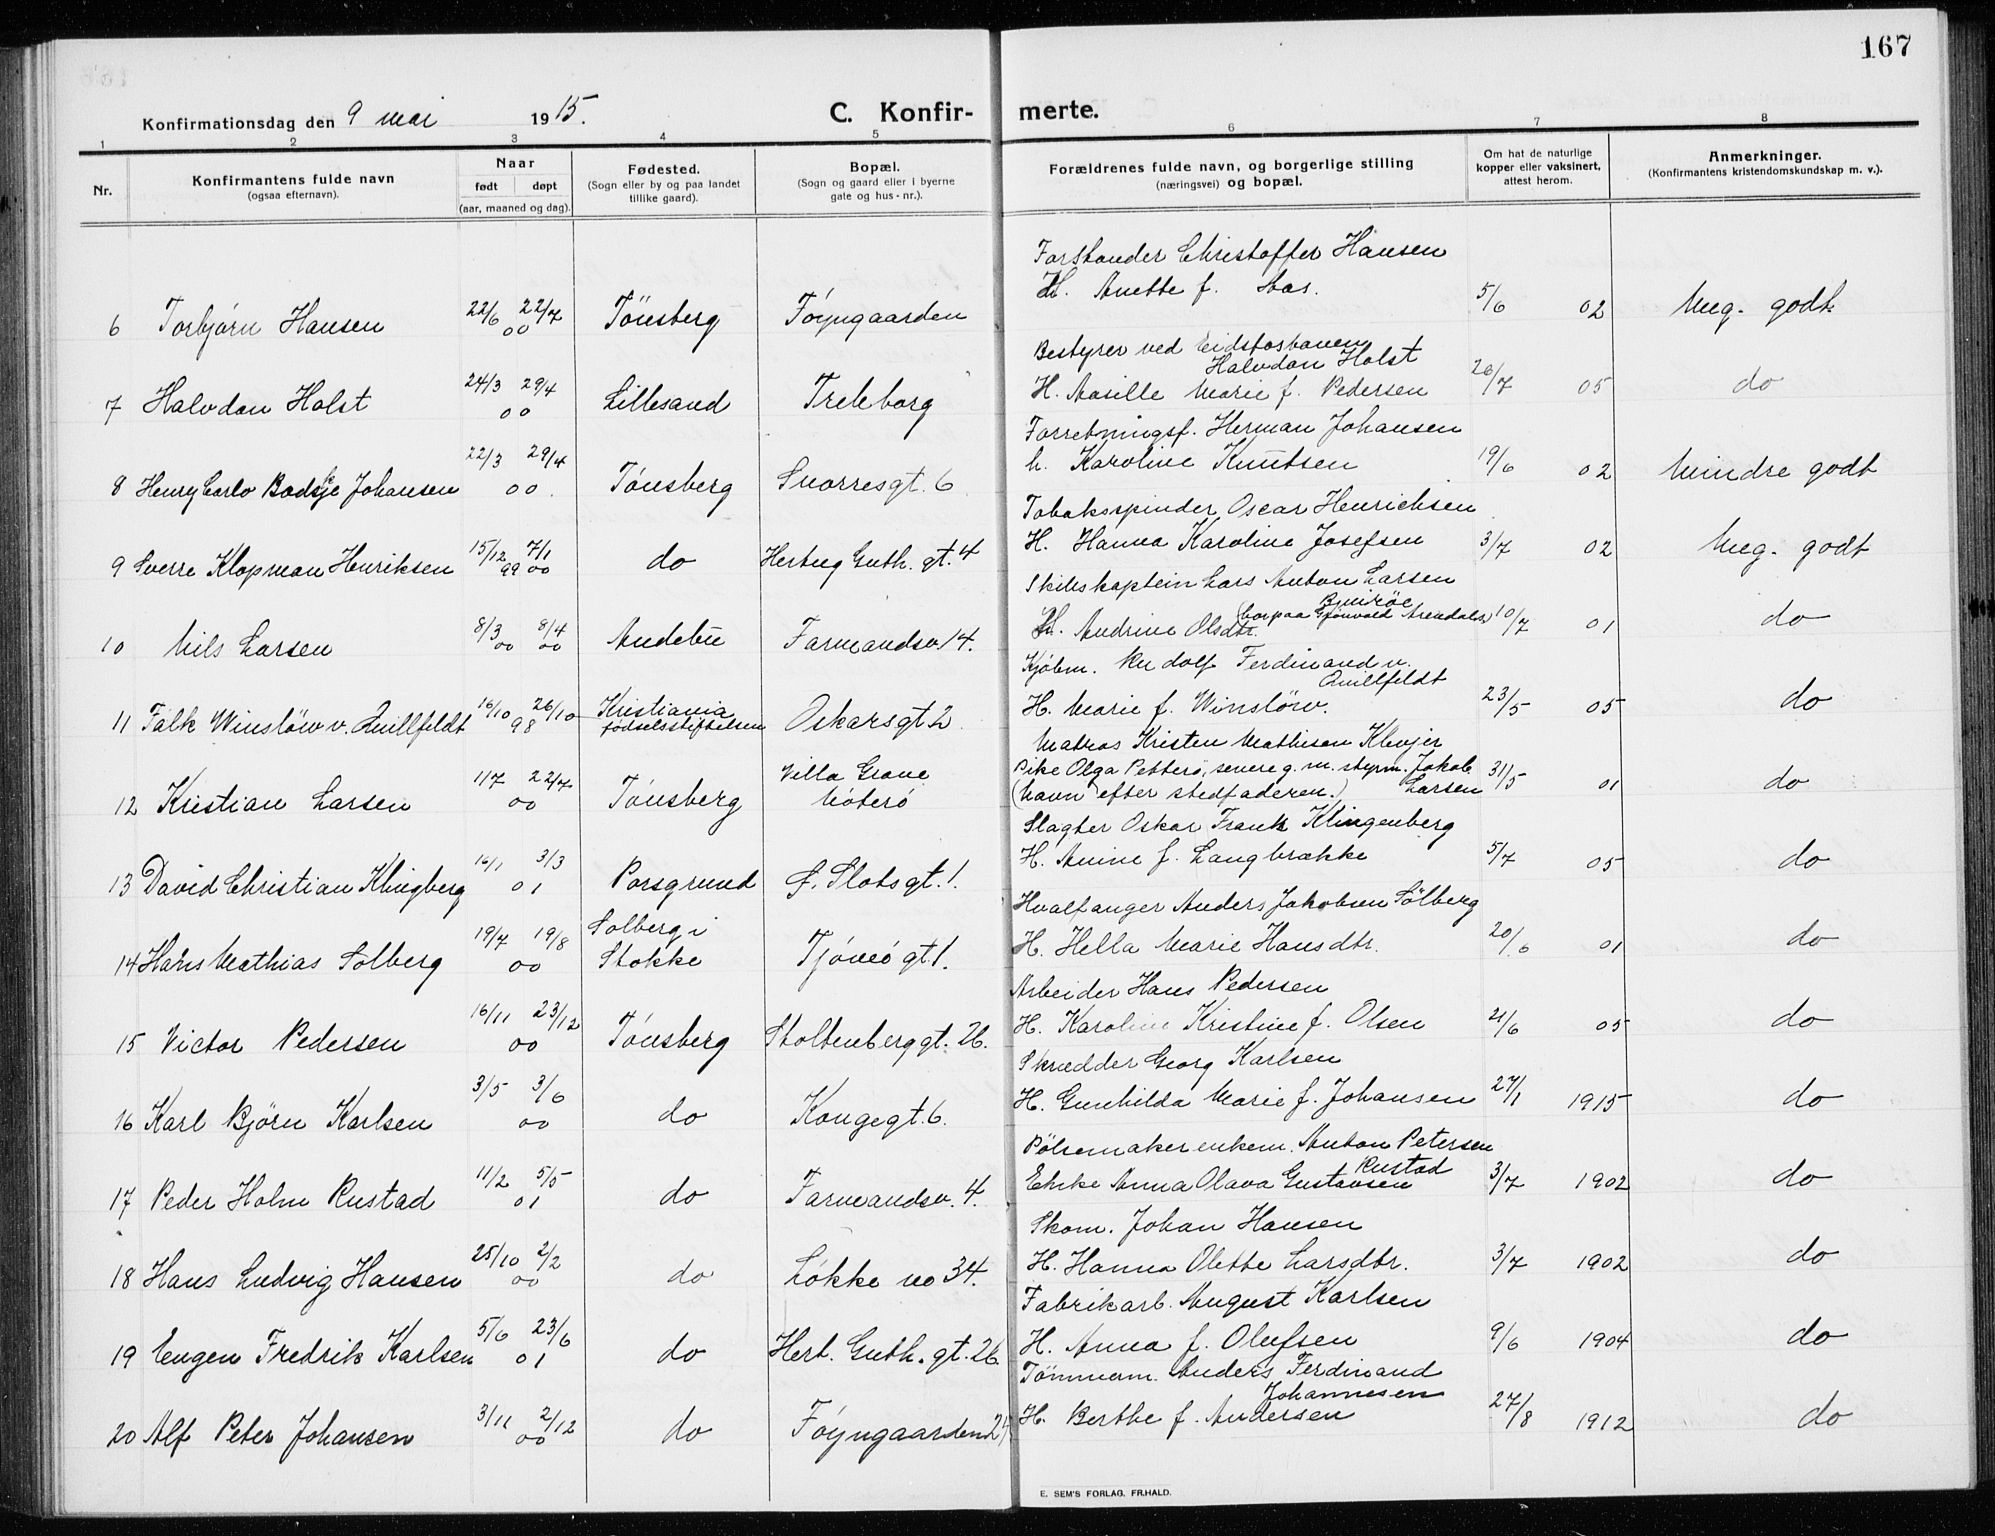 167
Konfirmationsdag den 9 mai 1915.
C. Konfirmerte.
1 2 3 4 5 6 7 8
Nr.
Konfirmantens fulde navn
(ogsaa efternavn).
Naar
født døpt
(aar, maaned og dag).
Fødested.
(Sogn eller by og paa landet
tillike gaard).
Bopæl.
(Sogn og gaard eller i byerne
gate og hus-nr.).
Forældrenes fulde navn, og borgerlige stilling
(næringsvei) og bopæl.
Om hat de naturlige
kopper eller vaksinert,
attest herom.
Anmerkninger.
(Konfirmantens kristendomskundskap m. v.).
Forstander Christoffer Hansen
H. Anette f. Aas.
6 Torbjørn Hansen 22/6 22/7 00 Tönsberg Föyngaarden 5/6 02 Meg. godt.
Bestyrer ved
Halvdan Holst
7 Halvdan Holst 24/3 29/4 00 Lillesand Treleborg H. Aasille Marie f. Pedersen 26/7 05 do
Forretningsf. Herman Johansen
8 Henry Carlo Johansen 22/3 29/4 00. Tönsberg Snorresgt. 6 h. Karoline Knutsen 19/6 02 Mindre godt
Tobaksspinder Oscar Henrichsen
9 Sverre Klopman Henriksen 15/12 99 7/1 00 do Hertug Guth. gt. 4 H. Hanna Karoline Josefsen 3/7 02 Meg. godt
Skibskaptein Lars Anton Larsen
10 Nils Larsen 8/3 00 8/4 00 Andebu Farmandsv. 14. H. Andrine Olsdtr. 10/7 01 do
Kjöbm. Rudolf Ferdinand v.
Quillfeldt
11 Falk Winslöw v. Quillfeldt 16/10 26/10 98 Kristiania fødselsstiftelsen Oskarsgt 2. H. Marie f. Winslöw. 23/5 05 do
Matros Kristen Mathisen
Pike Olga Petterö, senere g. m. styrm. Jakob
12 Kristian Larsen 1/7 22/7 00 Tönsberg Villa Grane Nöterö (Navn efter stedfaderen.) Larsen 31/5 01 do
Slagter Oskar Frank Klingenberg
13 David Christian Klingberg 16/1 3/3 01 Porsgrund f. Slotsgt. 1. H. Anine f. Langbrække 5/7 05 do
Hvalfanger Anders Jakobsen Sölberg
14 Hans Mathias Solberg 19/7 19/8 00 Solberg i Stokke Tjömögt 1. H. Hella Marie Hansdtr. 20/6 01 do
Arbeider Hans Pedersen
15 Victor Pedersen 16/11 23/12 00 Tönsberg Stoltenberggt. 26. H. Karoline Kristine f. Olsen 21/6 05 do
Skrædder Georg Karlsen
16 Karl Björn Karlsen 3/5 3/6 00 do Kongegt. 6. H. Gunhilda Marie f. Johansen 27/1 1915 do
Pölsemaker enkem. Anton Petersen
Rustad
17 Peder Holm Rustad 11/2 5/5 01 do Farmandsv. 4. Enke Anna Olava Gustavsen 3/7 1902 do
Skom. Johan Hansen
18 Hans Ludvig Hansen 25/10 2/2 00 do Lökke no 34. H. Hanna Olette Larsdtr. 3/7 1902 do
Fabrikarb. August Karlsen
19 Eugen Fredrik Karlsen 5/6 23/6 01 do Hert. Guth. gt. 26 H. Anna f. Olufsen 9/6 1904 do
Tömmerm. Anders Ferdinand
Johannesen
20 Alf Peter Johansen 3/11 2/12 00 do Föyngaarden H. Berthe f. Andersen 27/8 1912 do
E. SEM'S FORLAG. FR.HALD.